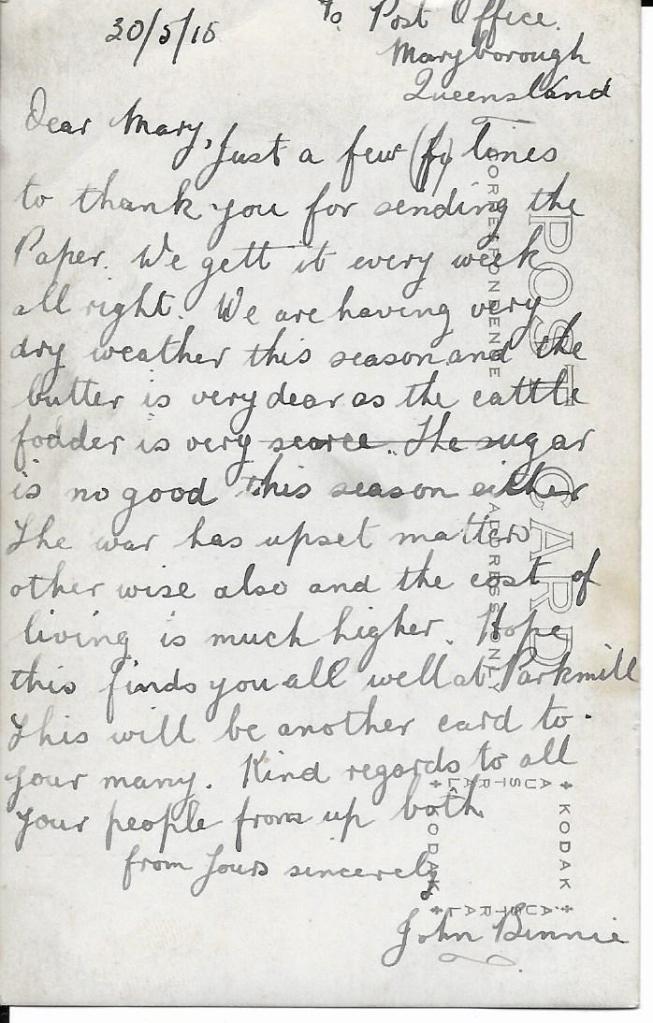 30/5/15
To Post Office.
Maryborough
Queensland
Dear Mary,
Just a few (fy) lines
to thank you for sending the
Paper. We gett it every week
all right. We are having very
dry weather this season and the
butter is very dear as the cattle
fodder is very scarce. The sugar
is no good this season either
The war has upset matters
other wise also and the cost of
living is much higher. Hope
this finds you all well at Parkmill
This will be another card to
your many. Kind regards to all
your people from up both
from yours sincerely
John Binnie
POST CARD
CORRESPONDENCE
ADDRESS ONLY
AUSTRAL
KODAK
AUSTRAL
KODAK